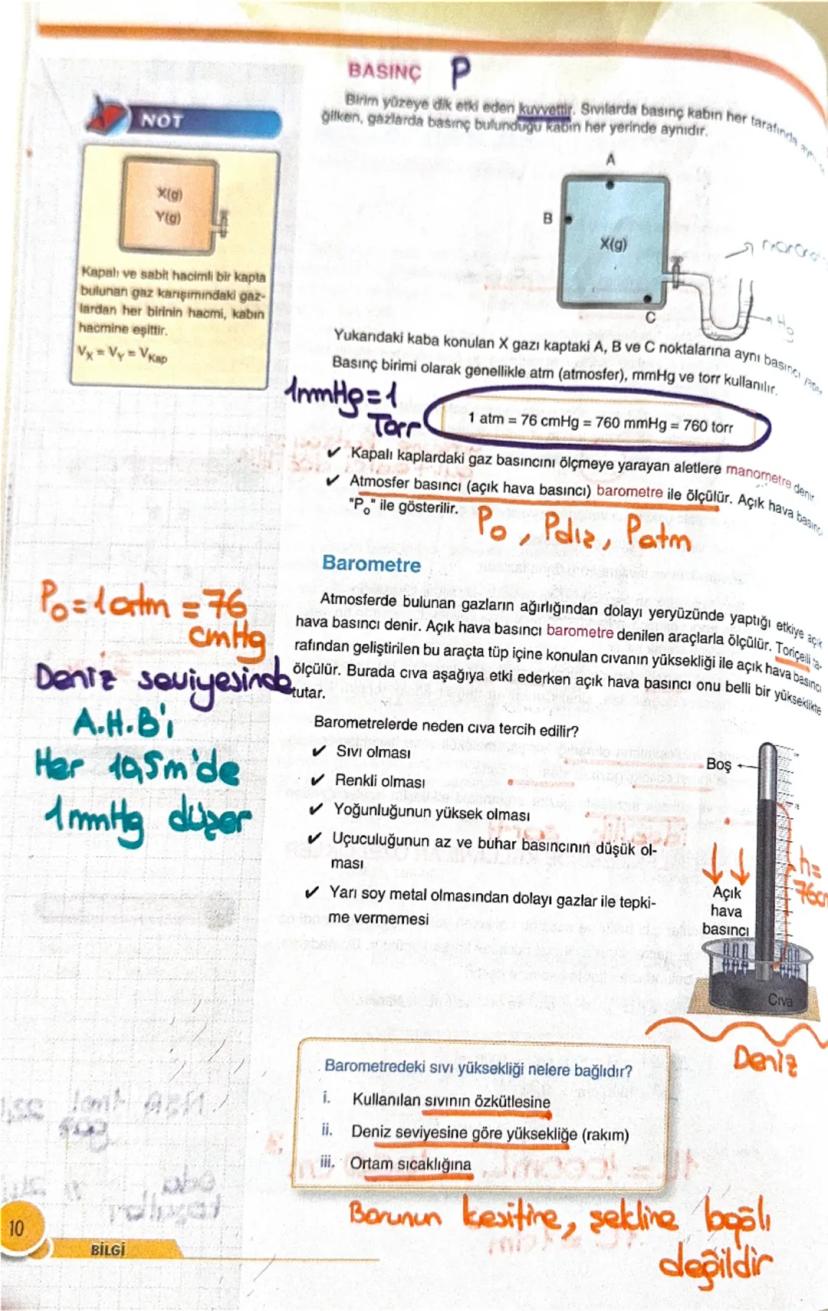 BASINÇ P
Birim yüzeye dik etki eden kuvvettir. Sıvılarda basınç kabın her tarafında
ğilken, gazlarda basınç bulunduğu kabın her yerinde aynıdır.
NOT
X(g)
Y(g)
Kapalı ve sabit hacimli bir kapta
bulunan gaz karışımındaki gaz-
lardan her birinin hacmi, kabın
hacmine eşittir.
Vx = VY = VKap
A
B
X(g)
C
Hg
Yukarıdaki kaba konulan X gazı kaptaki A, B ve C noktalarına aynı basıncı
Basınç birimi olarak genellikle atm (atmosfer), mmHg ve torr kullanılır.
1mmHg=1
Torr
1 atm = 76 cmHg = 760 mmHg = 760 torr
✔ Kapalı kaplardaki gaz basıncını ölçmeye yarayan aletlere manometre denir
✔ Atmosfer basıncı (açık hava basıncı) barometre ile ölçülür. Açık hava basıncı
"Po" ile gösterilir.
Po, Pdız, Patm
Barometre
Atmosferde bulunan gazların ağırlığından dolayı yeryüzünde yaptığı etkiye açık
hava basıncı denir. Açık hava basıncı barometre denilen araçlarla ölçülür. Toriçelli ta-
rafından geliştirilen bu araçta tüp içine konulan cıvanın yüksekliği ile açık hava basıncı
ölçülür. Burada cıva aşağıya etki ederken açık hava basıncı onu belli bir yükseklikte
tutar.
Po=1atm =76
cmHg
Deniz seviyesinde
A.H.B'ı
Her 10,5m'de
1mmHg düşer
Barometrelerde neden cıva tercih edilir?
✔ Sıvı olması
✔ Renkli olması
✔ Yoğunluğunun yüksek olması
✔ Uçuculuğunun az ve buhar basıncının düşük ol-
ması
✔ Yarı soy metal olmasından dolayı gazlar ile tepki-
me vermemesi
Boş
h=
76cm
Açık
hava
basıncı
Cıva
Deniz
Barometredeki sıvı yüksekliği nelere bağlıdır?
i. Kullanılan sıvının özkütlesine
ii. Deniz seviyesine göre yüksekliğe (rakım)
iii. Ortam sıcaklığına
Borunun kesitine, şekline bağlı
değildir
10
BİLGİ